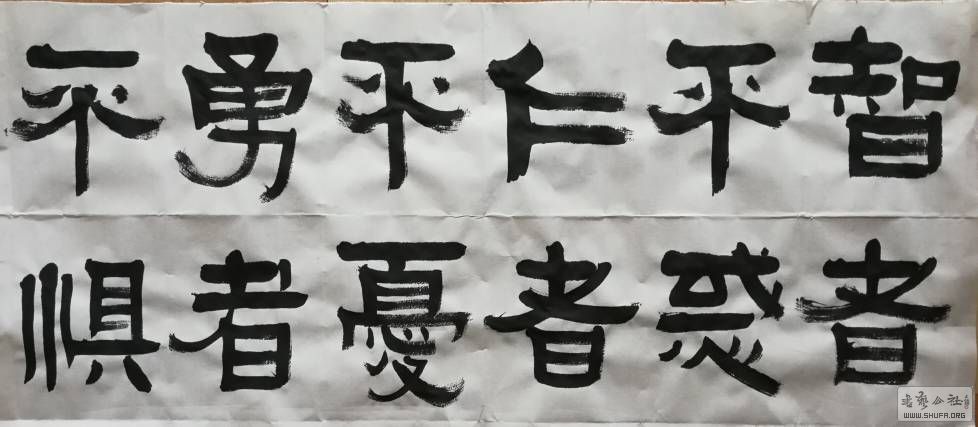 智者
不惑
仁者
不憂
勇者
不惧
WWW.SHUFA.ORG